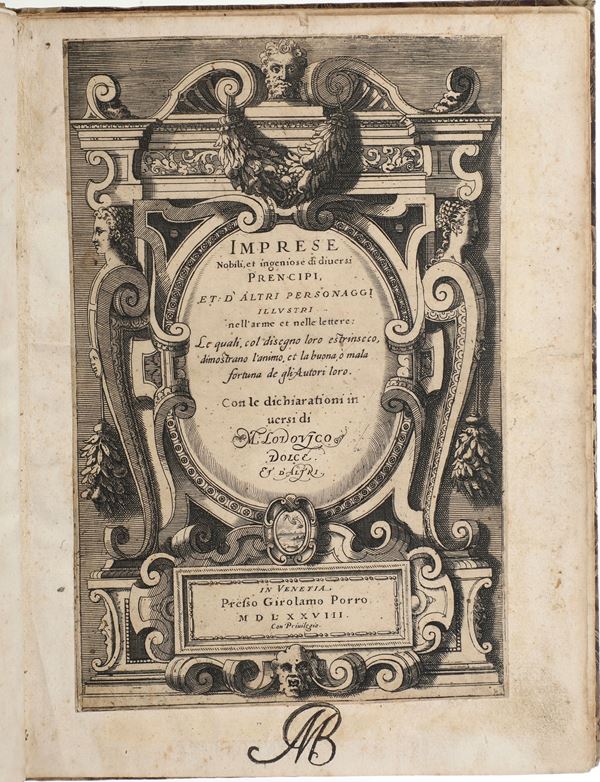 IMPRESE
Nobili, et ingeniose di diuersi
PRENCIPI,
ET D'ALTRI PERSONAGGI
ILLVSTRI
nell'arme et nelle lettere:
Le quali, col disegno loro estrinseco,
dimostrano l'animo, et la buona, ò mala
fortuna de gli Autori loro.
Con le dichiarationi in
uersi di
M. LODOVICO
DOLCE
ET D'ALTRI
IN VENETIA
Presso Girolamo Porro
MDLXXVIII.
Con Priuilegio.